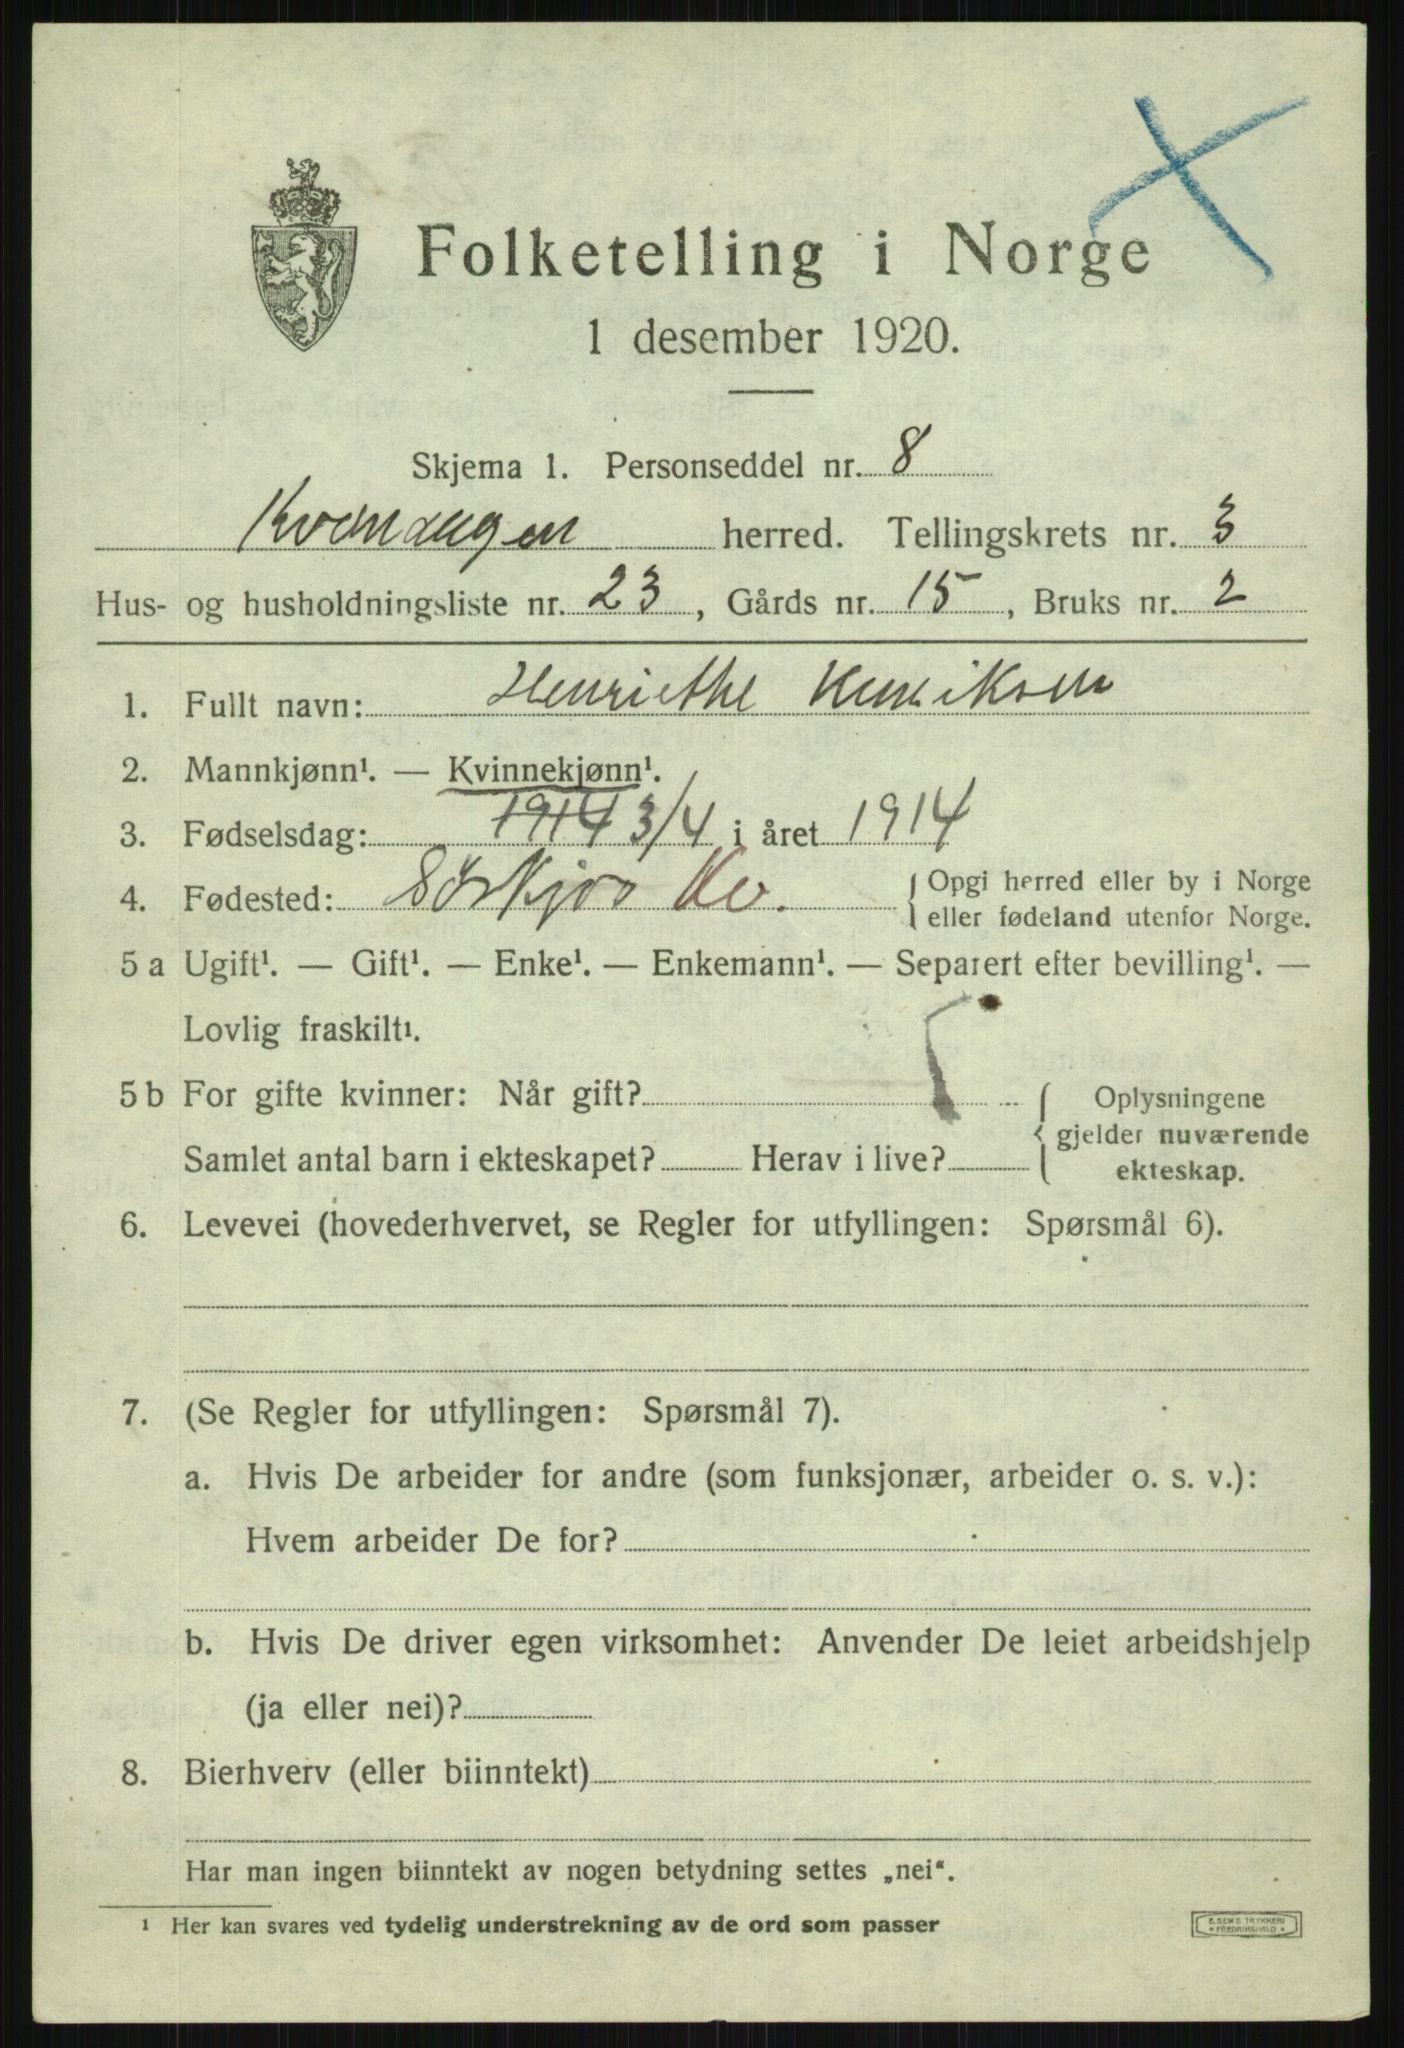 Folketelling i Norge
1 desember 1920.
Skjema 1. Personseddel nr. 8
Kvænangen herred. Tellingskrets nr. 3
Hus- og husholdningsliste nr. 23, Gårds nr. 15, Bruks nr. 2
1. Fullt navn: Henriethe Henriksen
2. Mannkjønn¹. — Kvinnekjønn¹.
3. Fødselsdag: 1914 3/4 i året 1914
4. Fødested: Sørkjos Kv. { Opgi herred eller by i Norge
eller fødeland utenfor Norge.
5 a Ugift¹. — Gift¹. — Enke¹. — Enkemann¹. — Separert efter bevilling¹. —
Lovlig fraskilt¹.
5 b For gifte kvinner: Når gift? { Oplysningene
gjelder nuværende
Samlet antal barn i ekteskapet? Herav i live?
ekteskap.
6. Levevei (hovederhvervet, se Regler for utfyllingen: Spørsmål 6).
7. (Se Regler for utfyllingen: Spørsmål 7).
a. Hvis De arbeider for andre (som funksjonær, arbeider o. s. v.):
Hvem arbeider De for?
b. Hvis De driver egen virksomhet: Anvender De leiet arbeidshjelp
(ja eller nei)?
8. Bierhverv (eller biinntekt)
Har man ingen biinntekt av nogen betydning settes „nei“.
¹ Her kan svares ved tydelig understrekning av de ord som passer
E. SEM'S TRYKKERI
FREDRIKSHALD